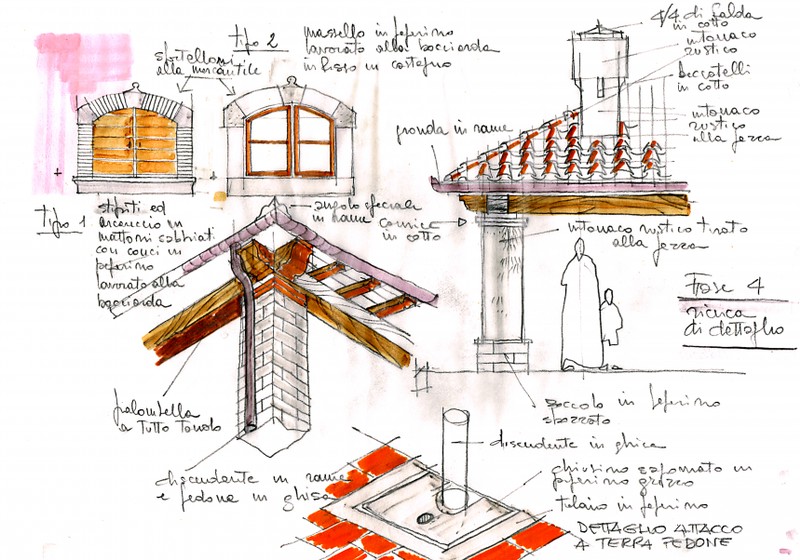 tipo 2
massello in peperino
lavorato alla bocciarda
infisso in castagno
sportelloni
alla mercantile
4/4 di falda
in cotto
intonaco
rustico
beccatelli
in cotto
intonaco
rustico
alla pezza
gronda in rame
tipo 1
stipiti ed
arcuccio in
mattoni sabbiati
con conci in
peperino
lavorato alla
bocciarda
angolo speciale
in rame
cornice
in cotto
intonaco rustico tirato
alla pezza
Fase 4
ricerca
di dettaglio
palombella
a tutto tondo
zoccolo in peperino
spozzato
discendente in ghisa
discendente in rame
e pedone in ghisa
chiusino sagomato in
peperino grezzo
telaio in peperino
DETTAGLIO ATTACCO
A TERRA PEDONE